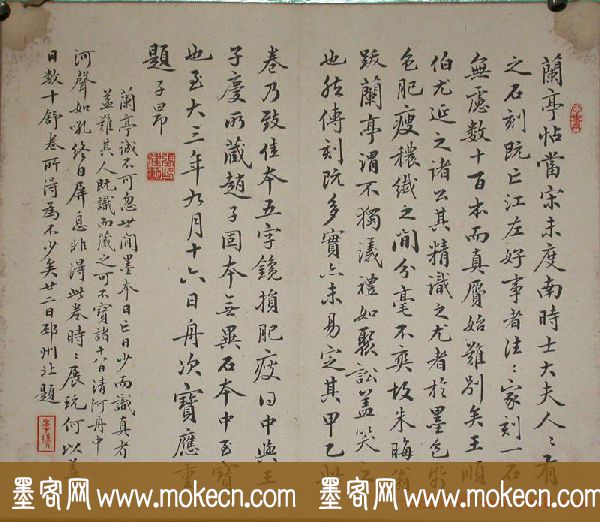 蘭亭帖當宋未度南時士大夫人々有
之石刻既亡江左好事者往々家刻一石
無慮數十百本而真贗始難別矣王順
伯尤延之諸公其精識之尤者於墨色
色肥瘦穠纖之間分毫不爽故朱晦翁
跋蘭亭謂不獨議禮如聚訟蓋笑之
也然傳刻既多實亦未易定其甲乙此
卷乃致佳本五字鐫損肥瘦得中與王
子慶所藏趙子固本無異石本中至寶
也至大三年九月十六日舟次寶應重
題 子昂
蘭亭誠不可忽世間墨本日亡日少而識真者
蓋難其人既識而藏之可不寶諸十八日清河舟中
河聲如吼終日屏息非得此卷時々展玩何以
日數十舒卷所得為不少矣廿二日邳州北題
墨客网 www.mokecn.com 墨客网 www.mokecn.com 墨客网